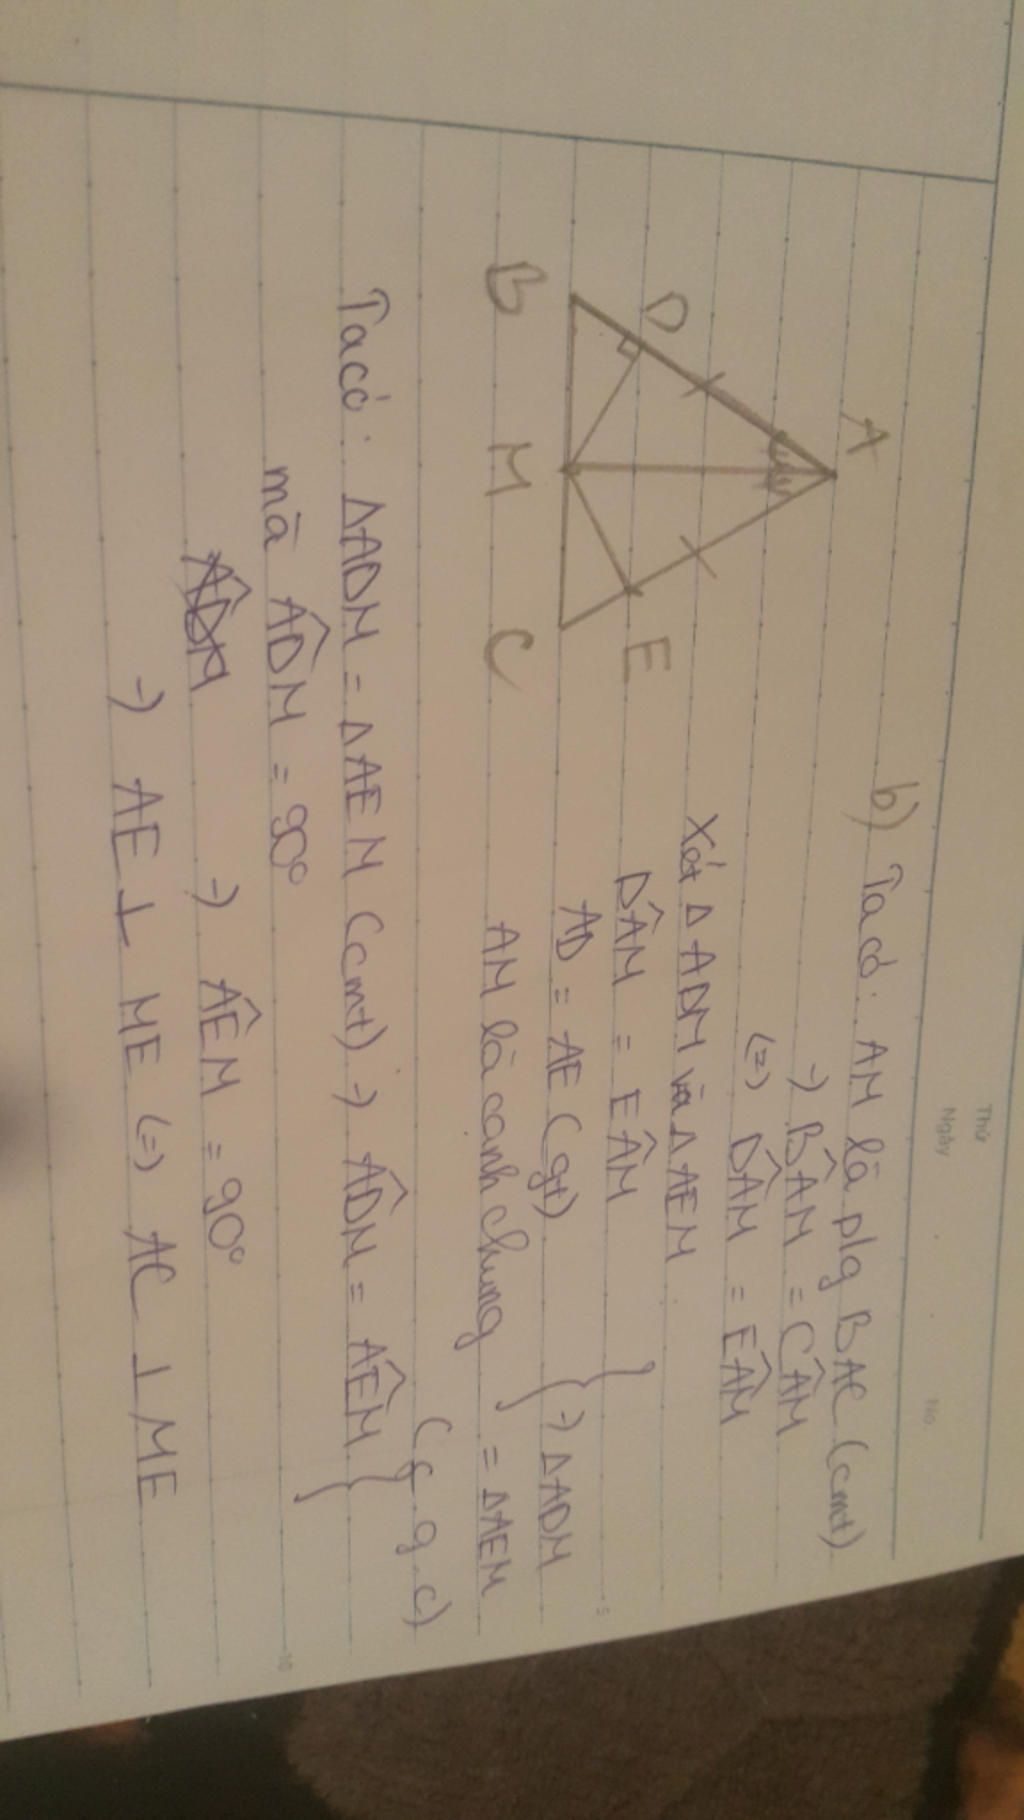 Thứ
Ngày
No.
b) Ta có: AM là plg BAC (cmt)
→ BÂM = CÂM
(=) DÂM = EÂM
Xét ΔADM và ΔAEM
DÂM = EÂM
AD = AE (gt)
AM là cạnh chung
} → ΔADM
= ΔAEM
(c.g.c)
A
D
E
B
M
C
Ta có: ΔADM = ΔAEM (cmt) → AD̂M = AÊM
mà AD̂M = 90°
AD̂M → AÊM = 90°
→ AE ⊥ ME (=) AC ⊥ ME
5
10